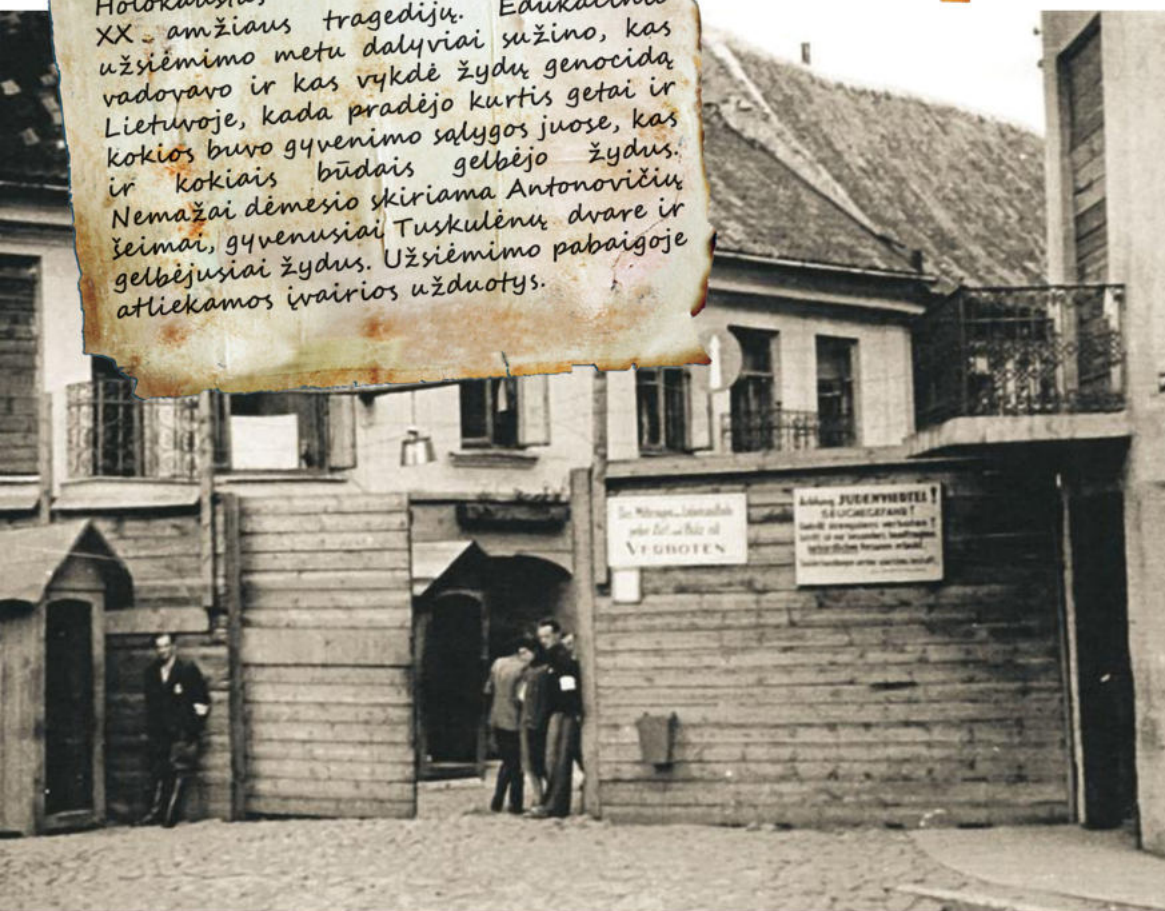 Holokaustas
XX amžiaus tragedijų. Edukacinio
užsiėmimo metu dalyviai sužino, kas
vadovavo ir kas vykdė žydų genocidą
Lietuvoje, kada pradėjo kurtis getai ir
kokios buvo gyvenimo sąlygos juose, kas
ir kokiais būdais gelbėjo žydus.
Nemažai dėmesio skiriama Antonovičių
šeimai, gyvenusiai Tuskulėnų dvare ir
gelbėjusiai žydus. Užsiėmimo pabaigoje
atliekamos įvairios užduotys.
jeder Art und Holz ist
VERBOTEN
Achtung JUDENVIERTEL !
strengstens verboten !